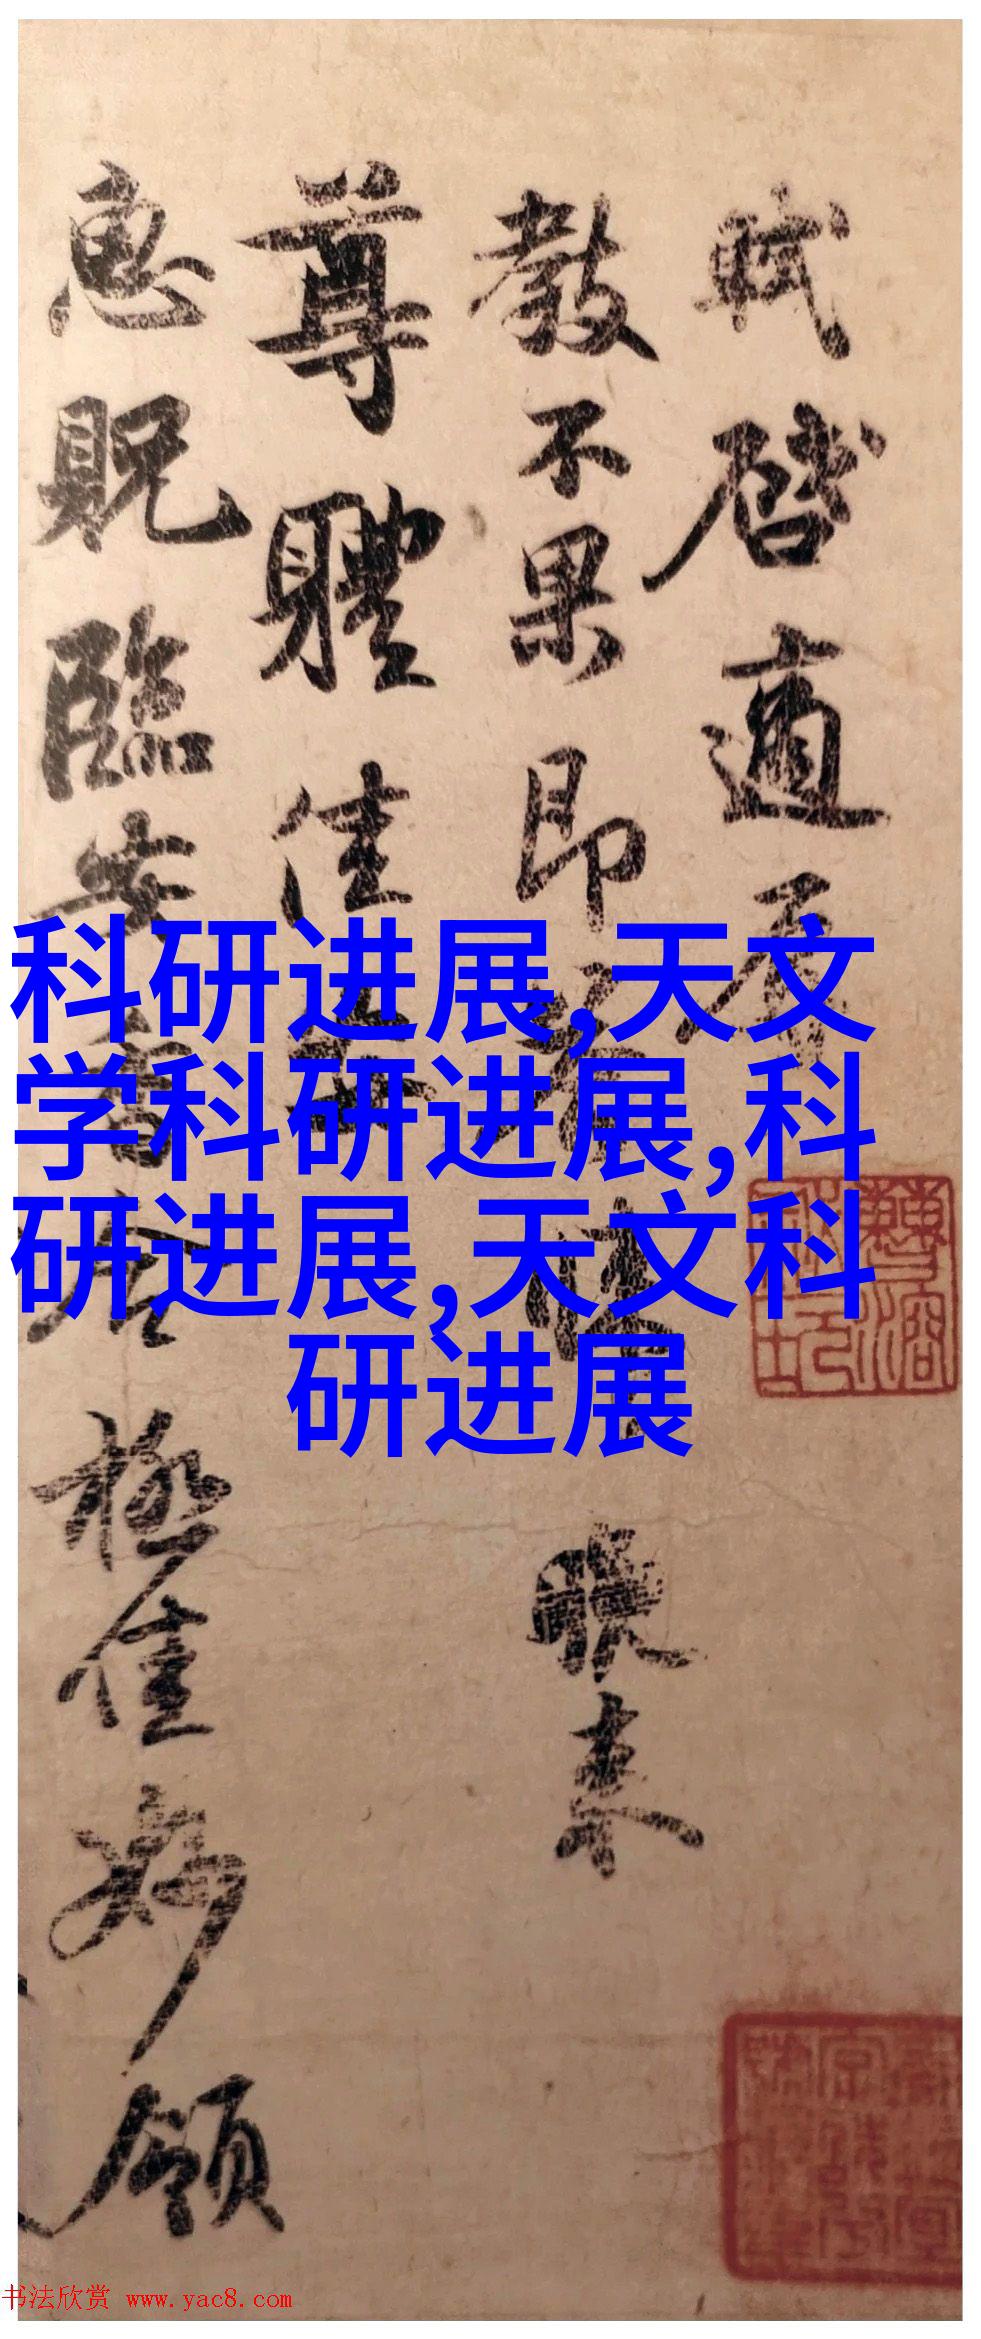 軾啓適辱
教不果即
晚來
尊體佳
惠貺臨安
極佳妙領
科研进展,天文
学科研进展,科
研进展,天文科
研进展
书法欣赏 www.yac8.com